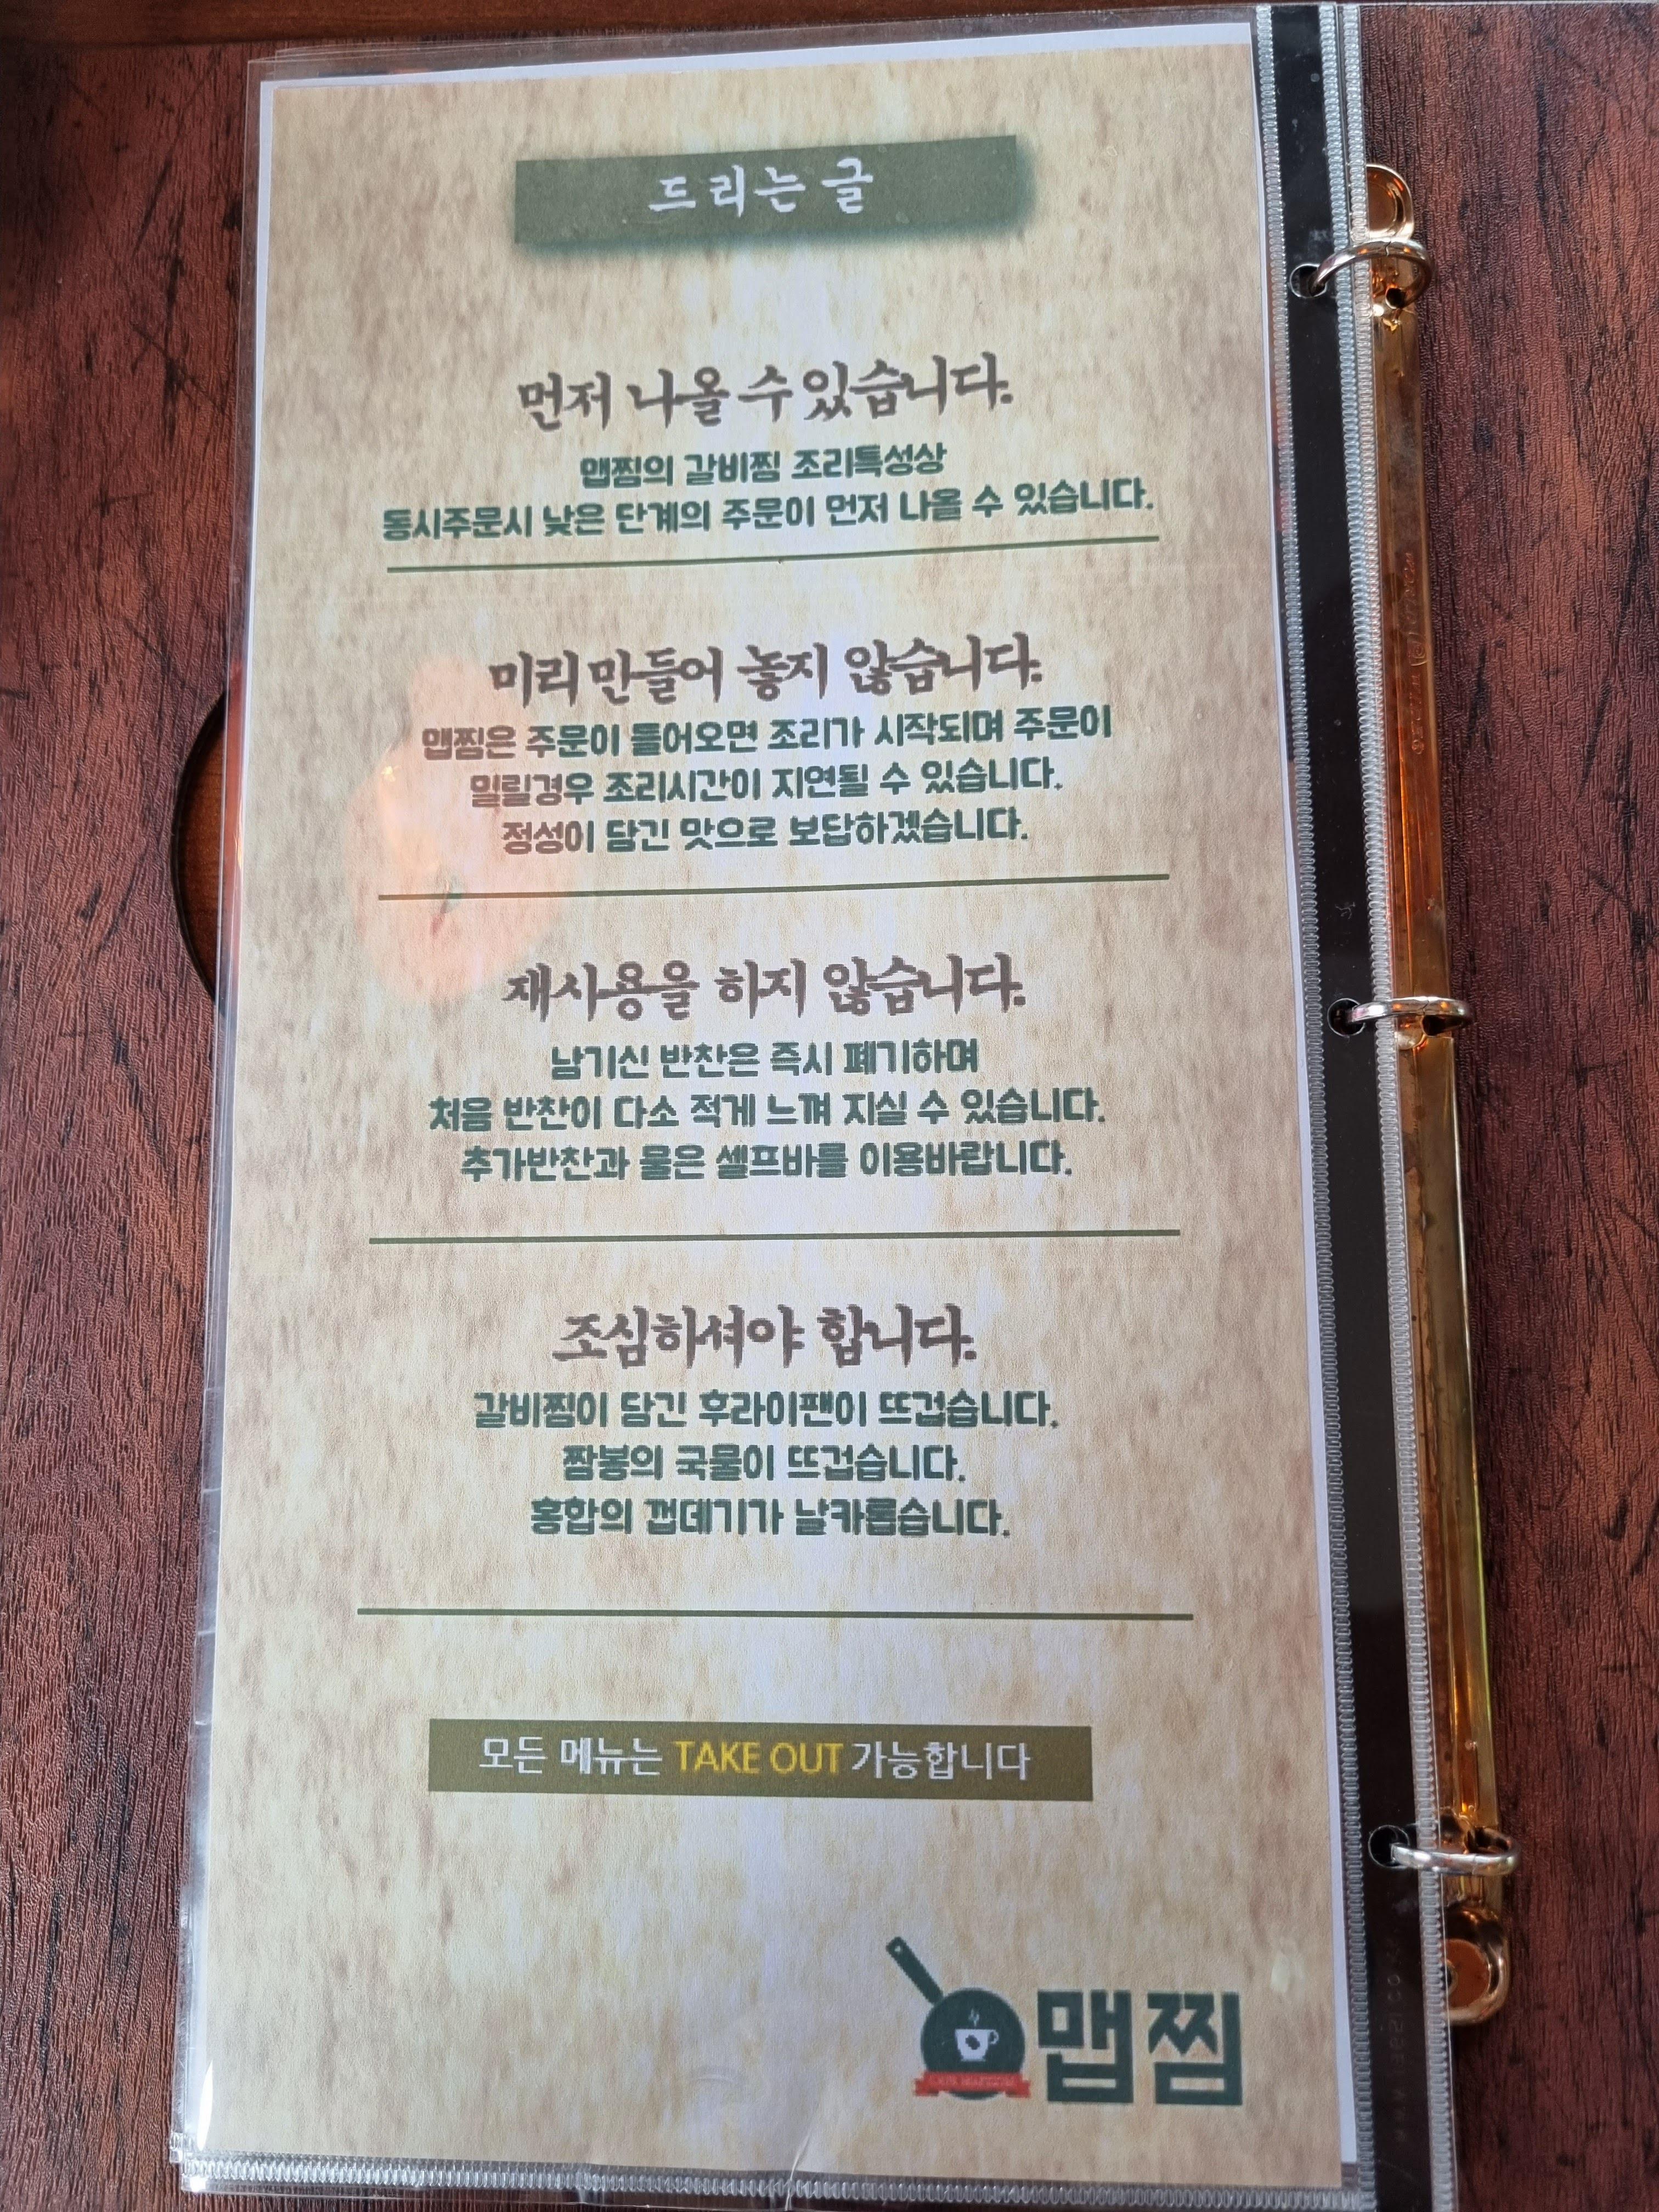 드리는 글
먼저 나올 수 있습니다.
맵찜의 갈비찜 조리특성상
동시주문시 낮은 단계의 주문이 먼저 나올 수 있습니다.
미리 만들어 놓지 않습니다.
맵찜은 주문이 들어오면 조리가 시작되며 주문이
밀릴경우 조리시간이 지연될 수 있습니다.
정성이 담긴 맛으로 보답하겠습니다.
재사용을 하지 않습니다.
남기신 반찬은 즉시 폐기하며
처음 반찬이 다소 적게 느껴 지실 수 있습니다.
추가반찬과 물은 셀프바를 이용바랍니다.
조심하셔야 합니다.
갈비찜이 담긴 후라이팬이 뜨겁습니다.
짬뽕의 국물이 뜨겁습니다.
홍합의 껍데기가 날카롭습니다.
모든 메뉴는 TAKE OUT 가능합니다
맵찜